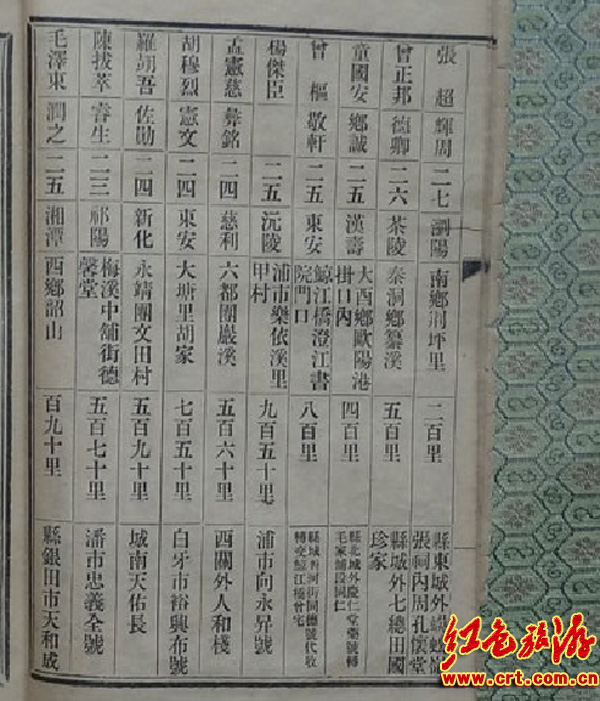 張超 輝周 二七 瀏陽 南鄉荆坪里 二百里 縣東城外 張祠內周孔懷堂
曾正邦 德卿 二六 茶陵 秦洞鄉纂溪 五百里 縣城外七總田國珍家
童國安 鄉誠 二五 漢壽 大西鄉歐陽港掛口內 四百里 縣北城外慶仁堂藥號轉毛家灘段同仁
曾樞 敬軒 二五 東安 鯨江橋澄江書院門口 八百里 縣城西河街同德號代收轉交鯨江橋曾宅
楊傑臣 二五 沅陵 浦市樂依溪里甲村 九百五十里 浦市向永昇號
孟憲慈 彝銘 二四 慈利 六都團巖溪 五百六十里 西關外人和棧
胡穆烈 憲文 二四 東安 大塘里胡家 七百五十里 白牙市裕興布號
羅翊吾 佐勛 二四 新化 永靖團文田村 五百九十里 城南天佑長
陳拔萃 睿生 二三 祁陽 梅溪中舖街德馨堂 五百七十里 潘市忠義全號
毛澤東 潤之 二五 湘潭 西鄉韶山 百九十里 縣銀田市天和成
红色旅游
www.crt.com.cn